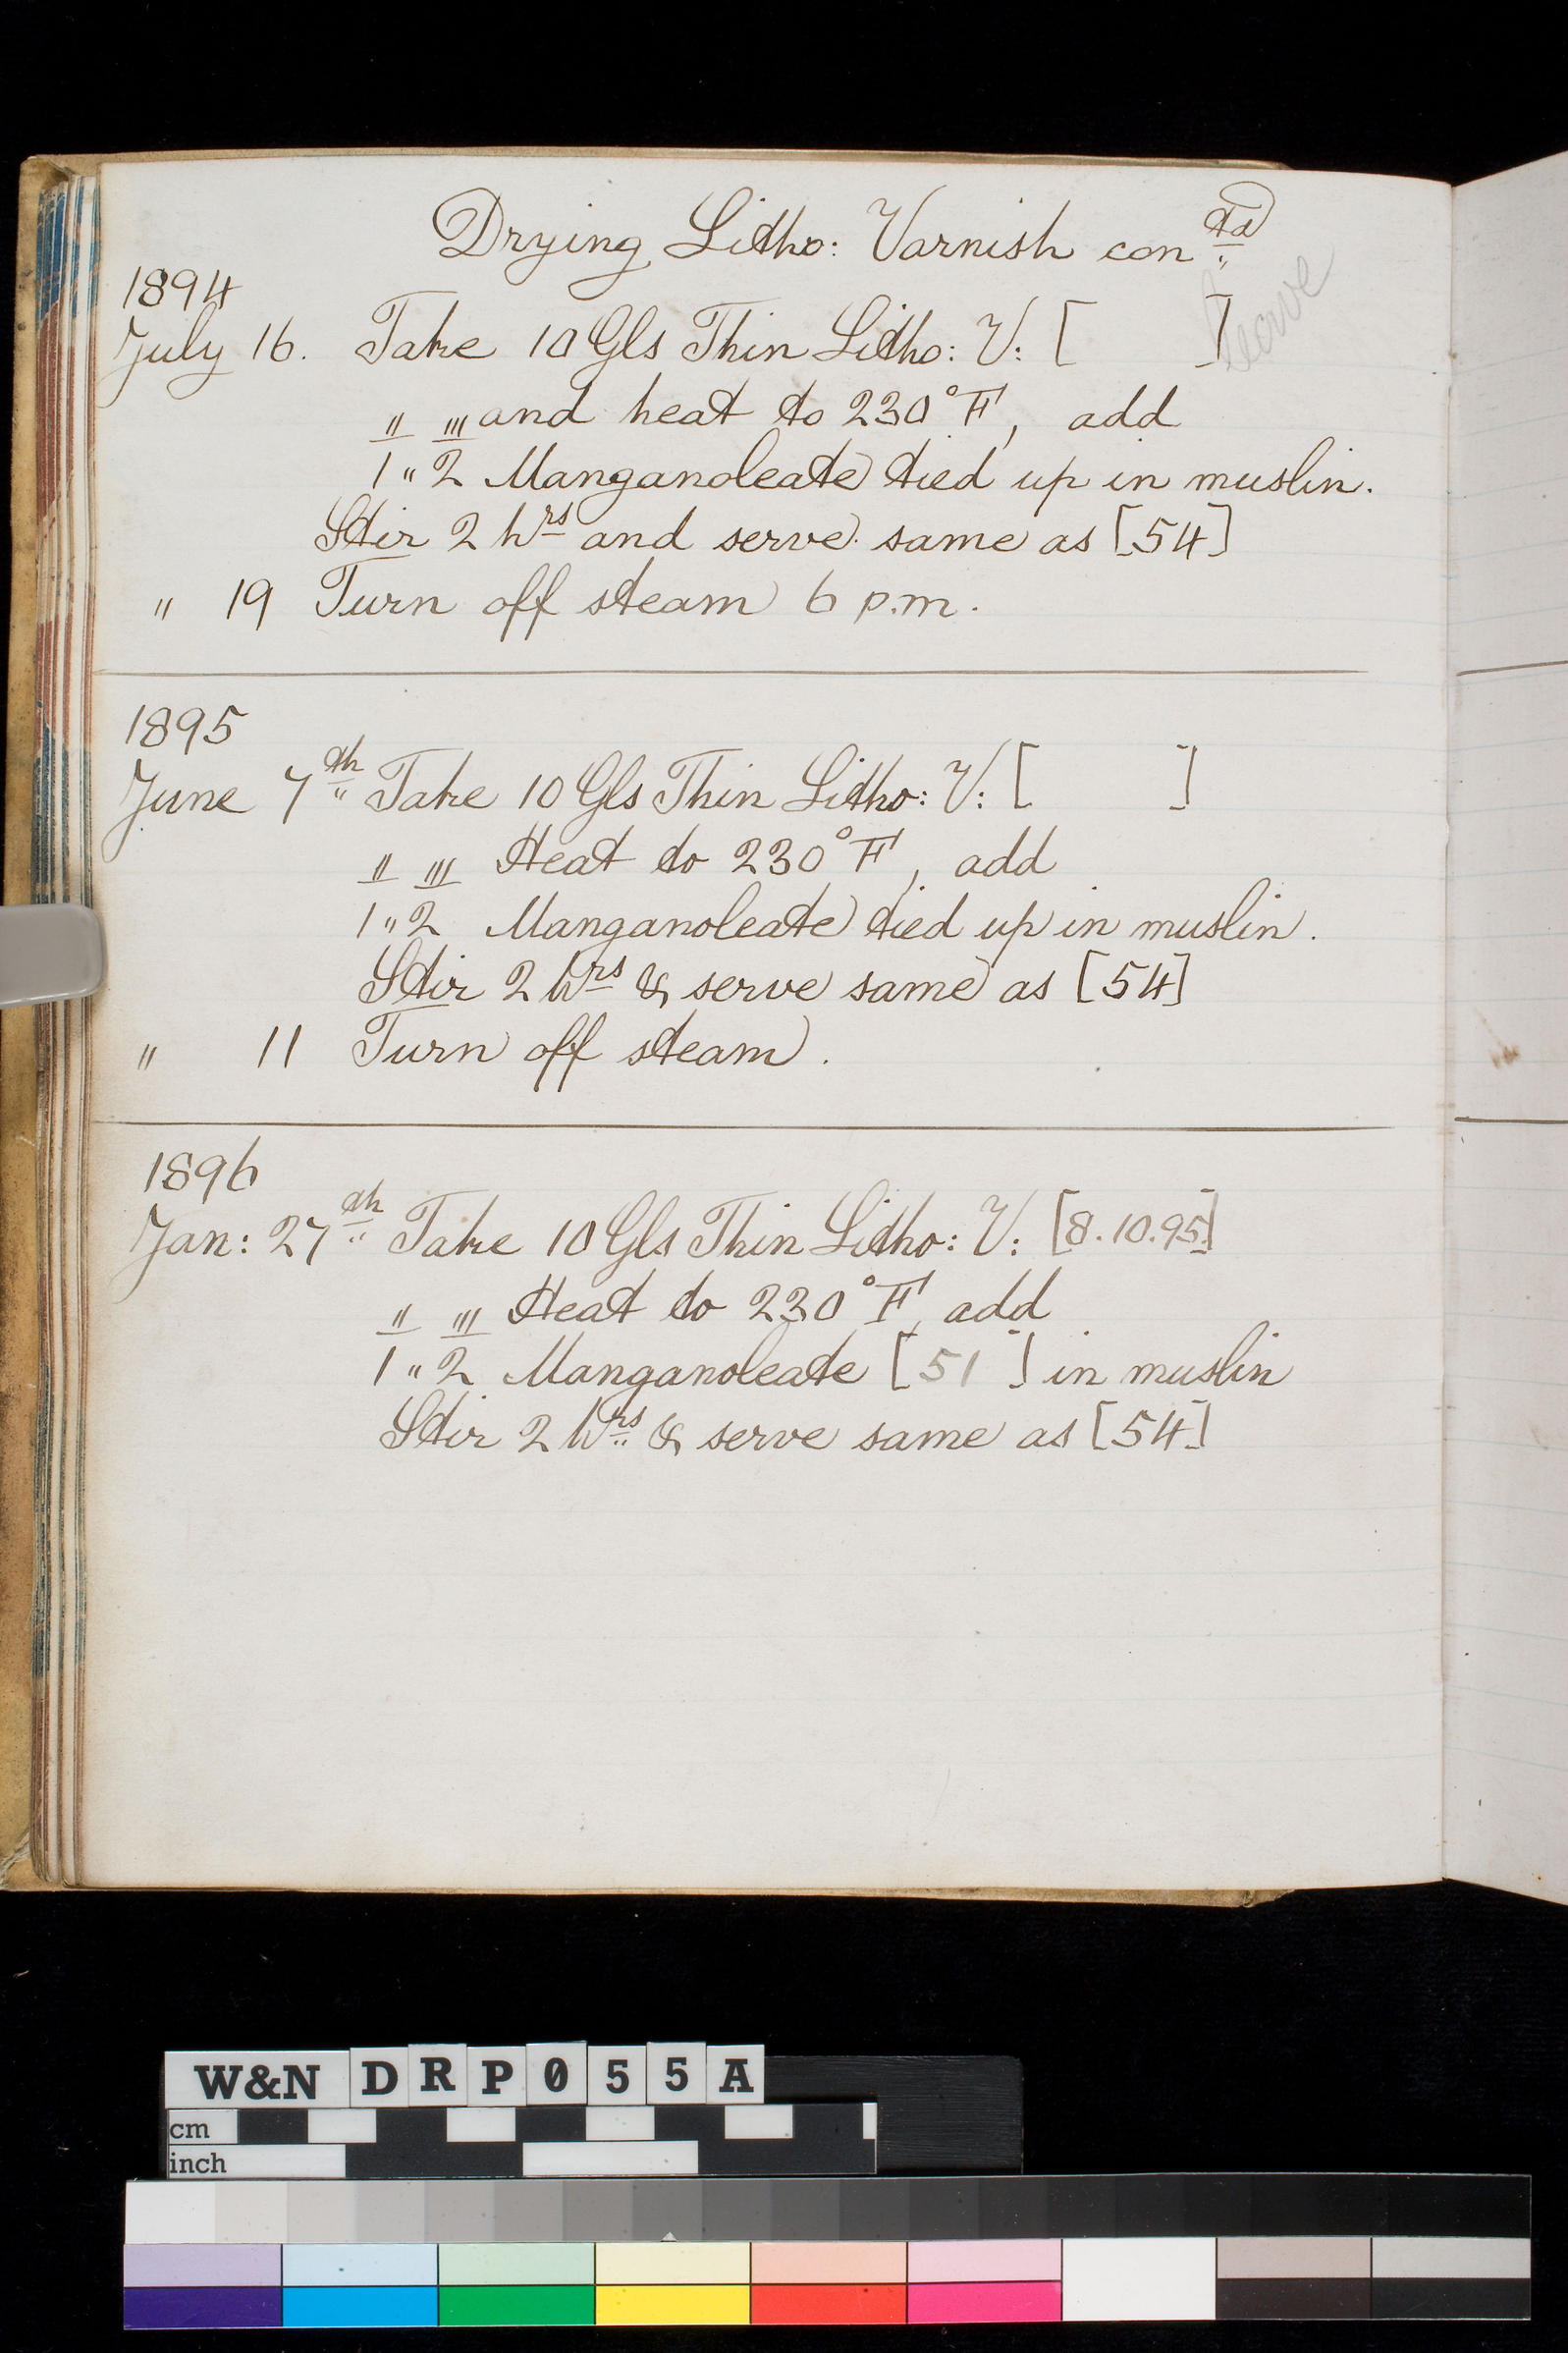 Drying Litho: Varnish contd
1894
July 16. Take 10 Gls Thin Litho: V: [ ]
leave
" "' and heat to 230°F, add
1 " 2 Manganoleate tied up in muslin.
Stir 2 hrs and serve same as [54]
" 19 Turn off steam 6 p.m.
1895
June 7th Take 10 Gls Thin Litho: V: [ ]
" "' Heat to 230°F, add
1 " 2 Manganoleate tied up in muslin.
Stir 2 hrs & serve same as [54]
" 11 Turn off steam.
1896
Jan: 27th Take 10 Gls Thin Litho: V: [8.10.95]
" "' Heat to 230°F, add
1 " 2 Manganoleate [51 ] in muslin
Stir 2 hrs & serve same as [54]
W&N DRP055A
cm
inch